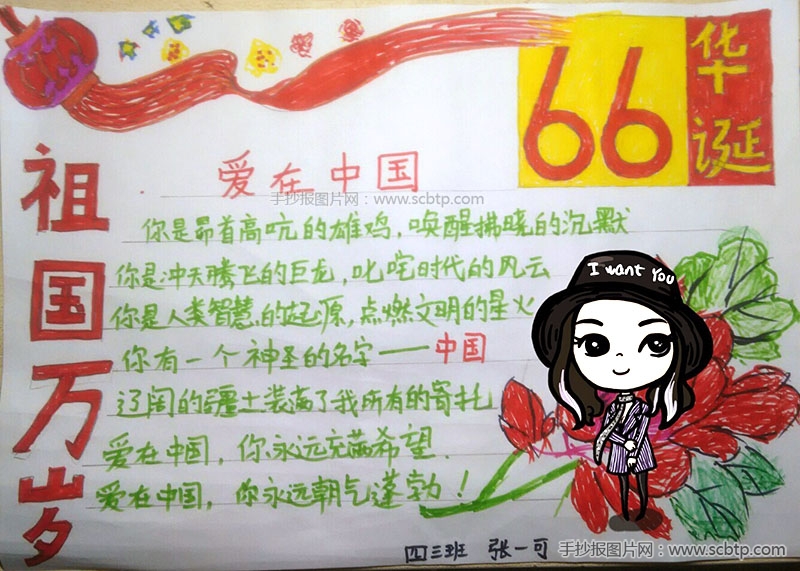 66华诞
祖国万岁
爱在中国
手抄报图片网：www.scbtp.com
你是昂首高吭的雄鸡，唤醒拂晓的沉默
你是冲天腾飞的巨龙，叱咤时代的风云
你是人类智慧的起原，点燃文明的星火
你有一个神圣的名字——中国
辽阔的疆土装满了我所有的寄托
爱在中国，你永远充满希望.
爱在中国，你永远朝气蓬勃！
I want You
四三班 张一可
手抄报图片网：www.scbtp.com